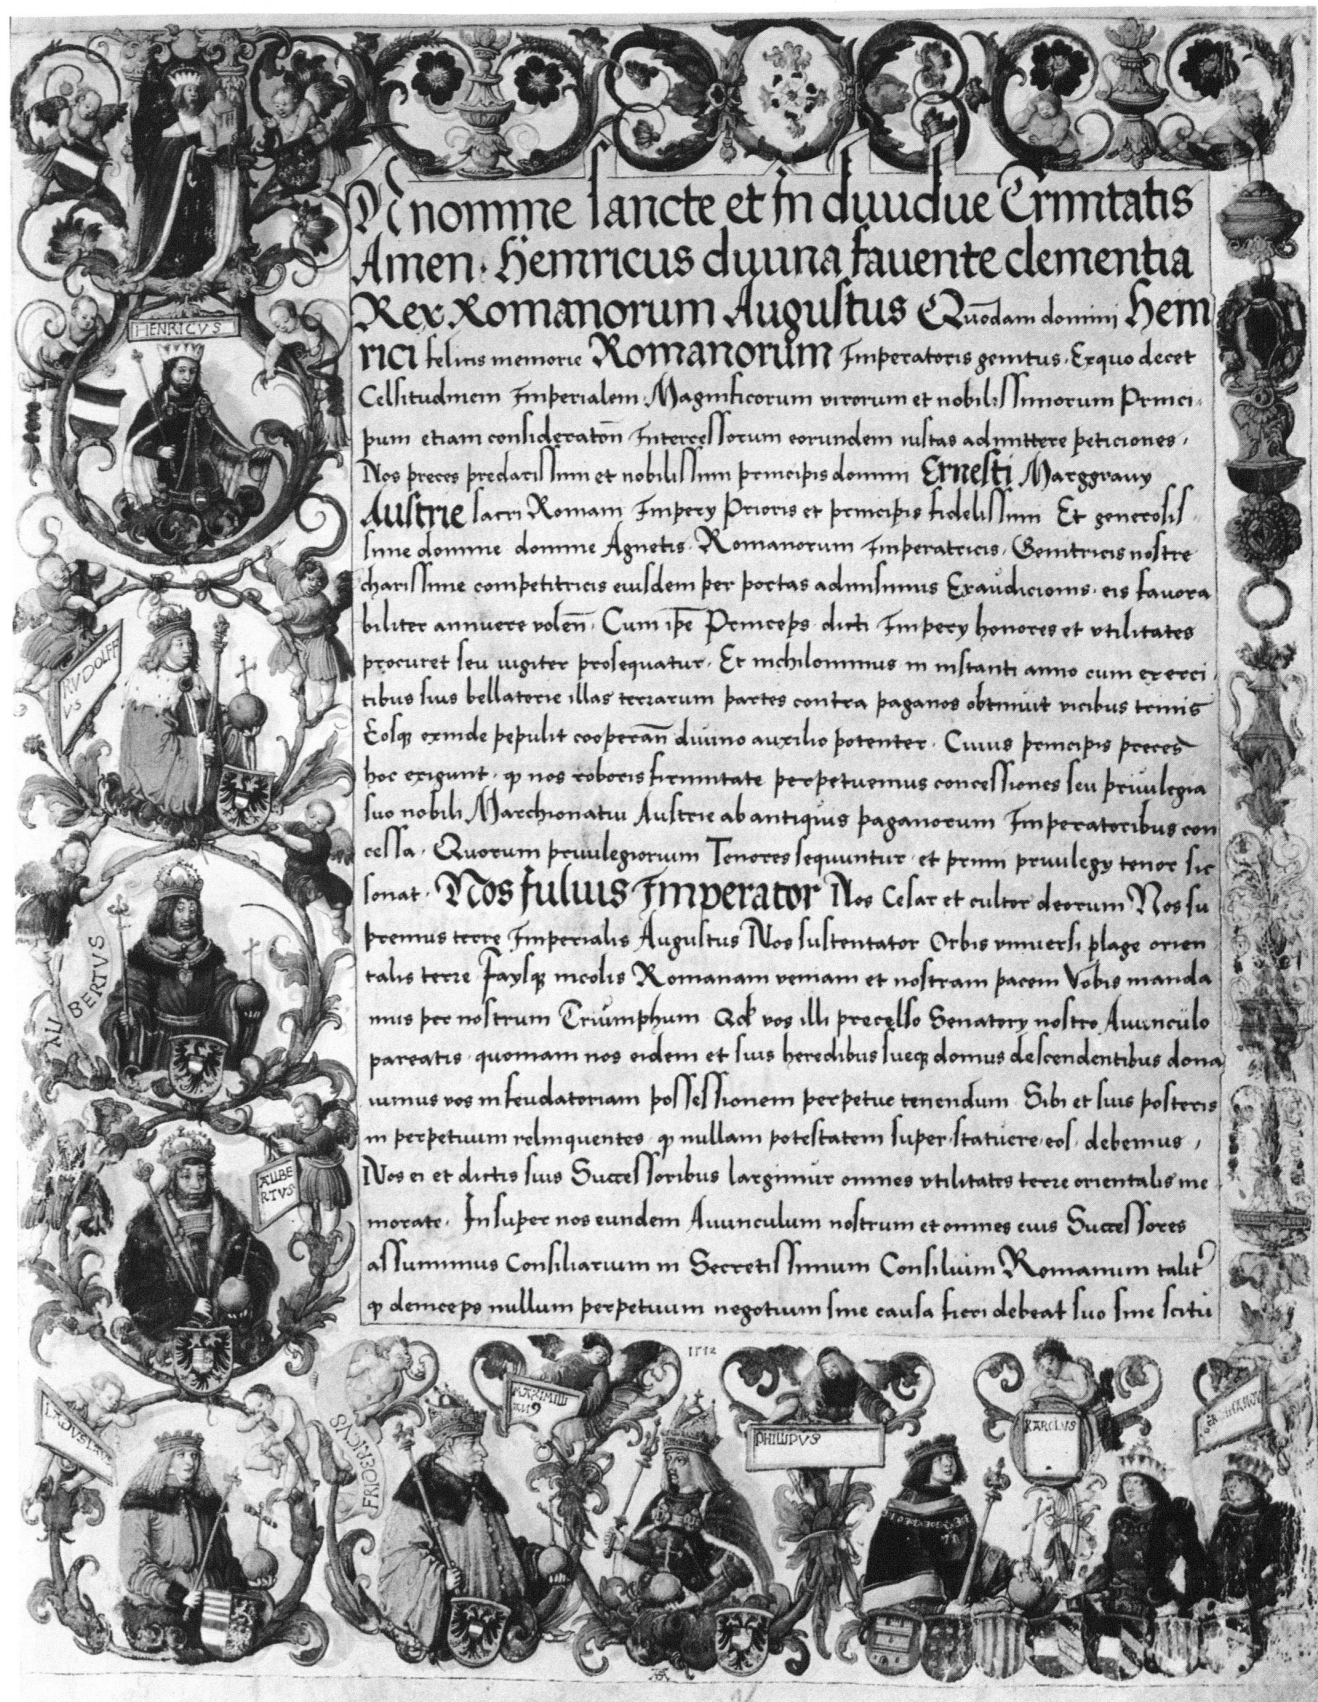 HENRICVS
RVDOLFF
VS
ALBERTVS
ALBE
RTVS
LADVSLAVS
FRIDERICVS
MAXIMILI
AN9
1512
PHILIPVS
KAROLVS
N nomine sancte et Indiuidue Trinitatis
Amen · Heinricus diuina fauente clementia
Rex Romanorum Augustus Quōdam domini Hein
rici felicis memorie Romanorum Imperatoris genitus · Exquo decet
Celsitudinem Imperialem · Magnificorum virorum et nobilissimorum Princi·
pum etiam consideratōn Intercessorum eorundem iustas admittere peticiones ·
Nos preces preclarissimi et nobilissimi principis domini Ernesti Marggrauy
Austrie sacri Romani Impery Prioris et principis fidelissimi Et generosis·
sime domine domine Agnetis · Romanorum Imperatricis · Genitricis nostre
charissime competitricis eiusdem per portas admisimus Exaudicionis · eis fauora
biliter annuere volen̄ · Cum ip̄e Princeps · dicti Impery honores et vtilitates
procuret seu iugiter prosequatur · Et nichilominus in instanti anno cum exerci·
tibus suis bellatorie illas terrarum partes contra paganos obtinuit vicibus trinis
Eosq exinde pepulit cooperan̄ diuino auxilio potenter · Cuius principis preces
hoc exigunt · ꝙ nos roboris firmitate perpetuemus concessiones seu priuilegia
suo nobili Marchionatui Austrie ab antiquis paganorum Imperatoribus con
cessa · Quorum priuilegiorum Tenores sequuntur · et primi priuilegy tenor sic
sonat · Nos Iulius Imperator Nos Cesar et cultor deorum Nos su
premus terre Imperialis Augustus Nos sustentator Orbis vniuersi plage orien
talis terre Iaysq incolis Romanam veniam et nostram pacem Vobis manda
mus per nostrum Triumphum Qd vos illi precelso Senatory nostro Auunculo
pareatis · quoniam nos eidem et suis heredibus sueq domus descendentibus dona
uimus vos in feudatoriam possessionem perpetue tenendum Sibi et suis posteris
in perpetuum relinquentes · ꝙ nullam potestatem super · statuere · eos · debemus ·
Nos ei et dictis suis Successoribus largimur omnes vtilitates terre orientalis me·
morate · Insuper nos eundem Auunculum nostrum et omnes eius Successores
assumimus Consiliarium in Secretissimum Consilium Romanum talit̄
ꝙ deinceps nullum perpetuum negotium siue causa fieri debeat suo sine scitu